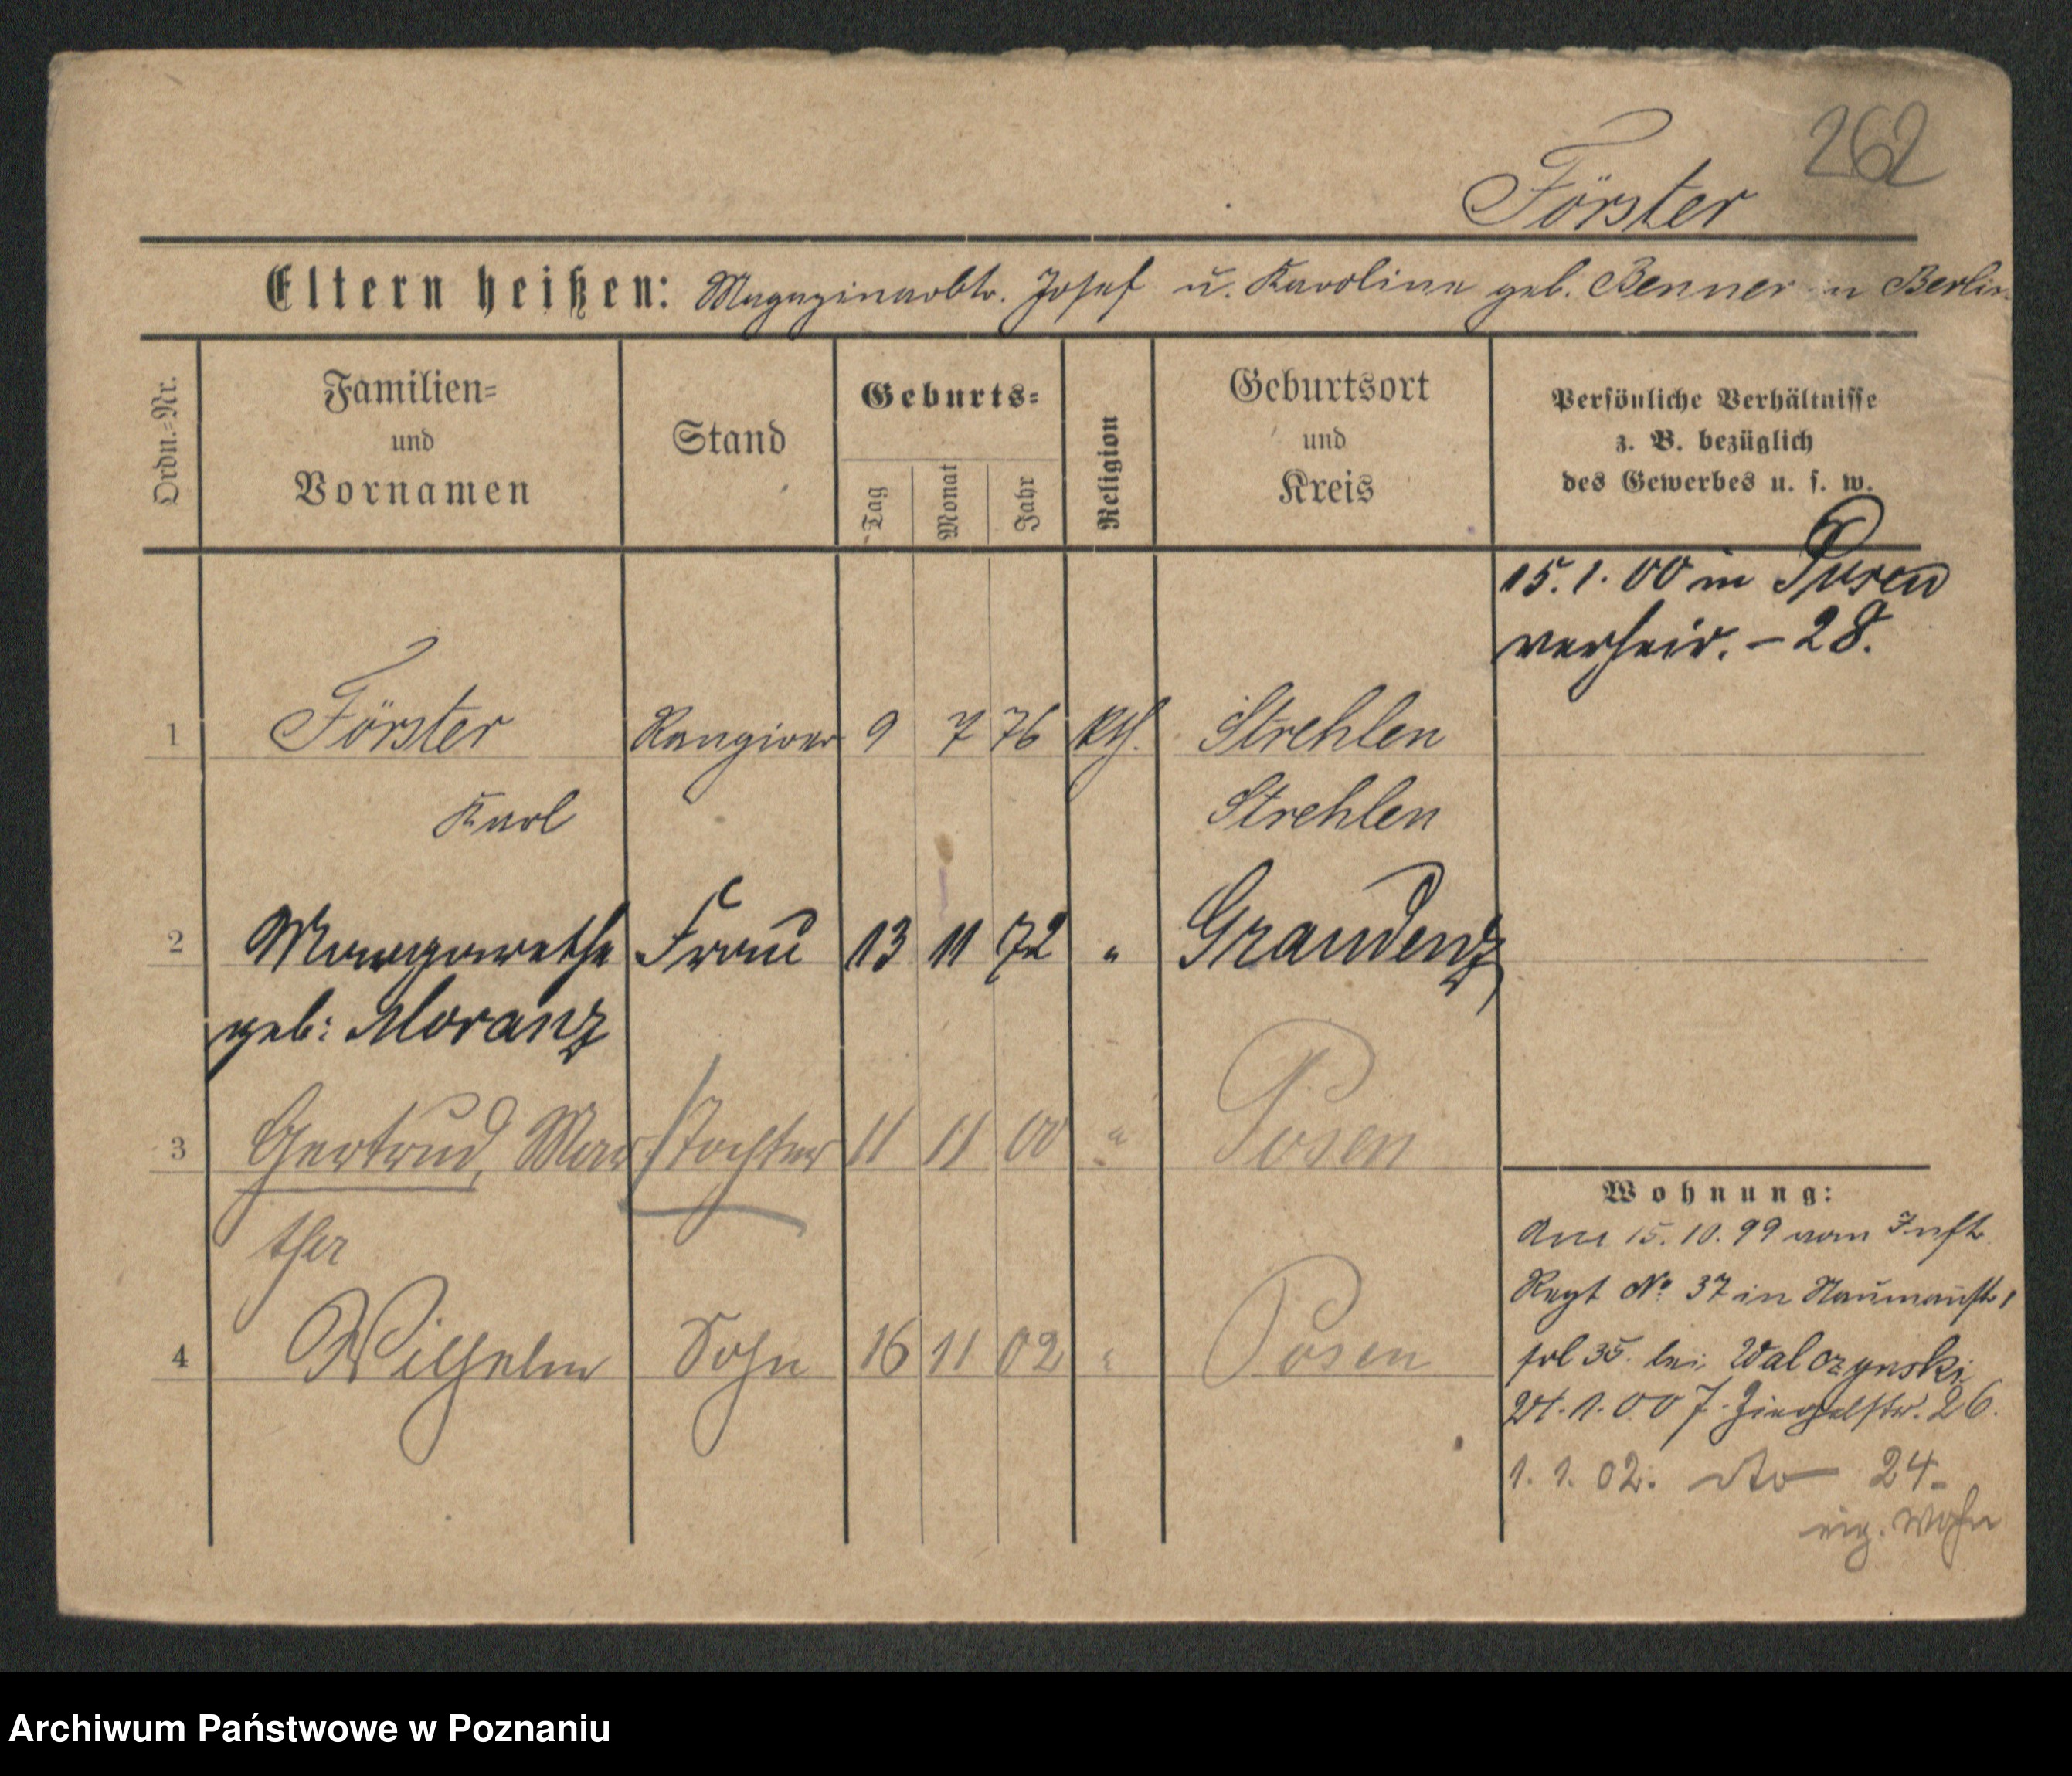 262
Förster
Eltern heißen: Magazinarbtr. Josef u. Karoline geb. Benner in Berlin
Ordn.=Nr.
Familien=
und
Vornamen
Stand
Geburts=
Tag
Monat
Jahr
Religion
Geburtsort
und
Kreis
Persönliche Verhältnisse
z. B. bezüglich
des Gewerbes u. s. w.
15.1.00 in Posen
verheir. – 28.
1 Förster Rangirer 9 7 76 kth. Strehlen
Karl Strehlen
2 Margarethe Frau 13 11 72 " Graudenz
geb: Moranz
3 Gertrud, Mar Tochter 11 11 00 " Posen
tha
Wohnung:
Am 15.10.99 vom Inft.
Regt No 37 in Naumannstr
4 Wilhelm Sohn 16 11 02 " Posen
35. bei Walczynski
1.00 Ziegelstr. 26.
1. 1. 02. dto 24.
eig. Wohn